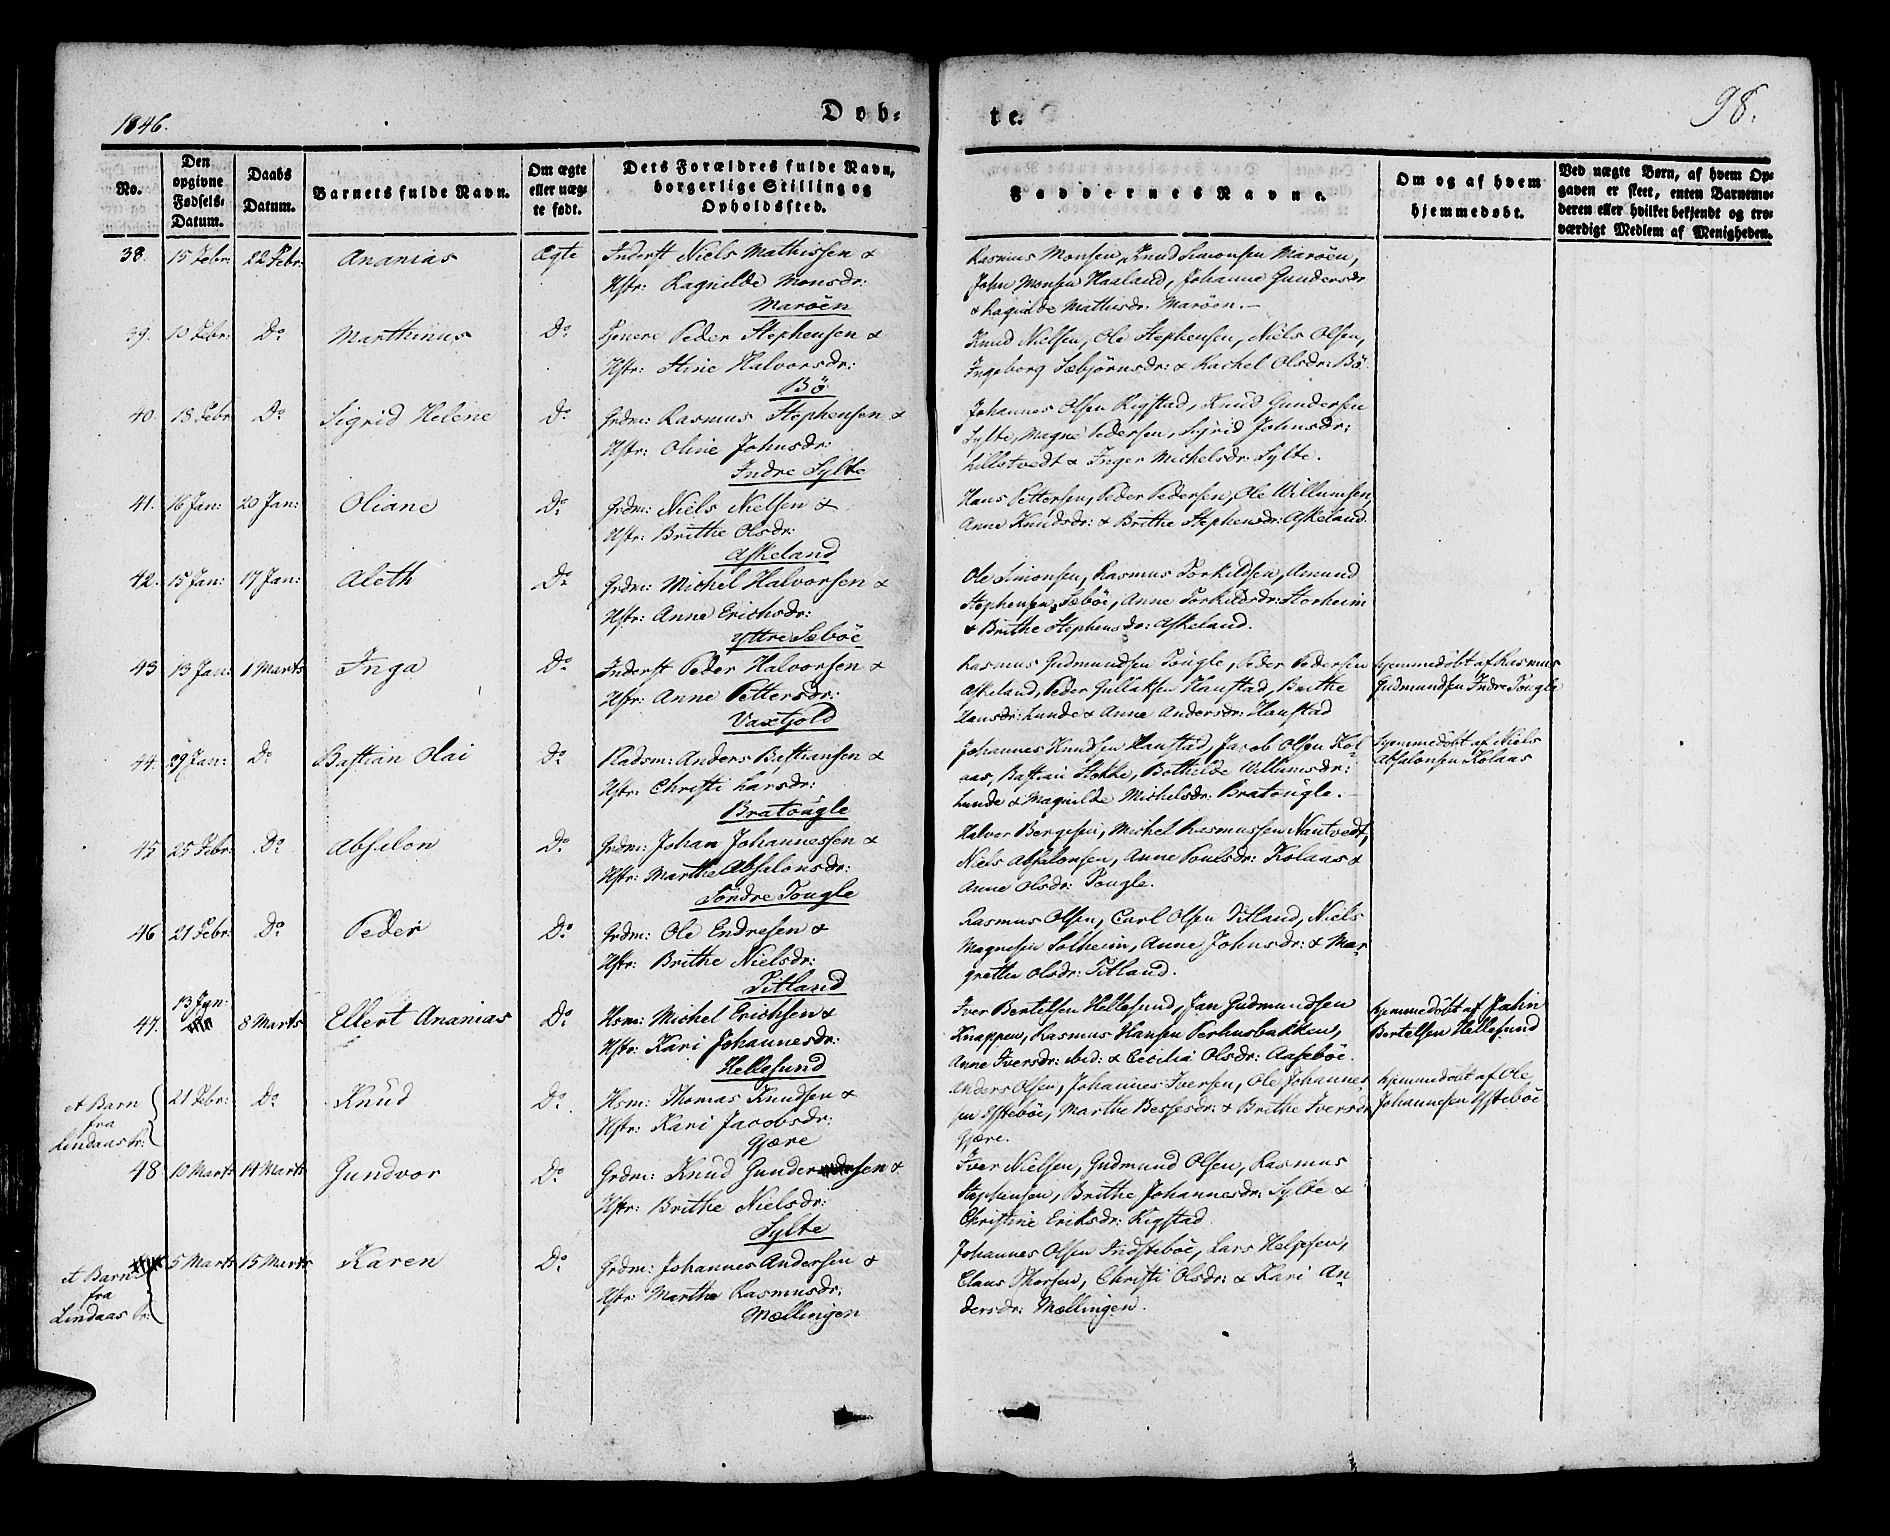 1846.
Døb-
te.
98.
No.
Den opgivne Fødsels-Datum.
Daabs Datum.
Barnets fulde Navn.
Om ægte eller uægte født.
Dets Forældres fulde Navn, borgerlige Stilling og Opholdssted.
Faddernes Navne.
Om og af hvem hjemmedøbt.
Ved uægte Børn, af hvem Opgaven er skeet, enten Barnemoderen eller hvilket bekjendt og troværdigt Medlem af Menigheden.
38. 15 Febr: 22 Febr: Ananias Ægte Inderst Niels Mathissen &
Hstr: Ragnilde Monsdr:
Maröen
Rasmus Monsen, Knud Simonsen Maröen,
John Monsen Haaland, Johanne Gundersdr
& Ragnilde Mathisdr: Maröen.
39. 10 Febr: Do Marthinus Do Tjenere Peder Stephensen &
Hstr: Stine Halvorsdr:
Bö
Knud Nielsen, Ole Stephensen, Niels Olsen,
Ingeborg Sæbjörnsdr: & Rachel Olsdr: Bö
40. 18 Febr Do Sigrid Helene Do Grdm: Rasmus Stephensen &
Hstr: Oline Johnsdr:
Indre Sylte
Johannes Olsen Rigstad, Knud Gundersen
Sylte, Magne Pedersen, Sigrid Johnsdr:
Lilletvedt & Inger Michelsdr: Sylte.
41. 16 Jan: 20 Jan: Oliane Do Grdm: Niels Nielsen &
Hstr: Brithe Olsdr:
Askeland
Hans Pettersen, Peder Pedersen, Ole Willumsen,
Anne Knudsdr: & Brithe Stephensdr: Askeland.
42. 15 Jan: 17 Jan: Aleth Do Grdm: Michel Halvorsen &
Hstr: Anne Erichsdr:
Yttre Sæböe
Ole Simonsen, Rasmus Torkildsen, Amund
Stephensen Sæböe, Anne Torkildsdr: Storheim
& Brithe Stephensdr: Askeland.
43 13 Jan: 1 Marts Inga Do Inderst Peder Halvorsen &
Hstr: Anne Pettersdr:
Vaxtjold
Rasmus Gudmundsen Tougle, Peder Pedersen
Askeland, Peder Gullaksen Haustad, Brithe
Hansdr: Lunde & Anne Andersdr: Haustad
hjemmedöbt af Rasmus
Gudmundsen Indre Tougle
44. 29 Jan: Do Bastian Olai Do Pladsm: Anders Bastiansen &
Hstr: Christi Larsdr:
Bratougle
Johannes Knudsen Haustad, Jacob Olsen Kol-
aas, Bastian Stokke, Bothilde Willumsdr:
Lunde & Magnilde Michelsdr: Bratougle.
hjemmedöbt af Niels
Absalonsen Kolaas
45 25 Febr: Do Absalon Do Grdm: Johan Johannessen &
Hstr: Marthe Absalonsdr:
Söndre Tougle
Halvor Bergesen, Michel Rasmussen Nautvedt,
Niels Absalonsen, Anne Poulsdr: Kolaas &
Anne Olsdr: Tougle.
46 21 Febr: Do Peder Do Grdm: Ole Endresen &
Hstr: Brithe Nielsdr:
Titland
Rasmus Olsen, Carl Olsen Titland, Niels
Magnesen Solheim, Anne Johnsdr: & Mar-
grethe Olsdr: Titland.
47. 13 Jan: 8 Marts Ellert Ananias Do Hsm: Michel Erichsen &
Hstr: Kari Johannesdr:
Hellesund
Iver Bertelsen Hellesund, Jan Gudmundsen
Knappen, Rasmus Hansen Perhusbakken,
Anne Iversdr: ibid: & Cecilia Olsdr: Aaseböe.
hjemmedöbt af
Bertelsen Hellesund
et Barn
fra
Lindaas Pr:
21 Febr: Do Knud Do Hsm: Thomas Knudsen &
Hstr: Kari Jacobsdr:
Gjære
Anders Olsen, Johannes Iversen, Ole Johannes-
sen Ystebøe, Marthe Bessesdr: & Brithe Iversdr
Gjære.
hjemmedöbt af Ole
Johannesen Ystebøe
48 10 Marts 14 Marts Gundvor Do Grdm: Knud Gundersen &
Hstr: Brithe Nielsdr:
Sylte
Iver Nielsen, Gudmund Olsen, Rasmus
Stephensen, Brithe Johannesdr: Sylte &
Christine Eriksdr: Rigstad.
et Barn
fra
Lindaas Pr:
5 Marts 15 Marts Karen Do Grdm: Johannes Andersen &
Hstr: Marthe Rasmusdr:
Mællingen
Johannes Olsen Indsteböe, Lars Helgesen,
Claus Thorsen, Christi Olsdr: & Kari An-
dersdr: Mællingen.